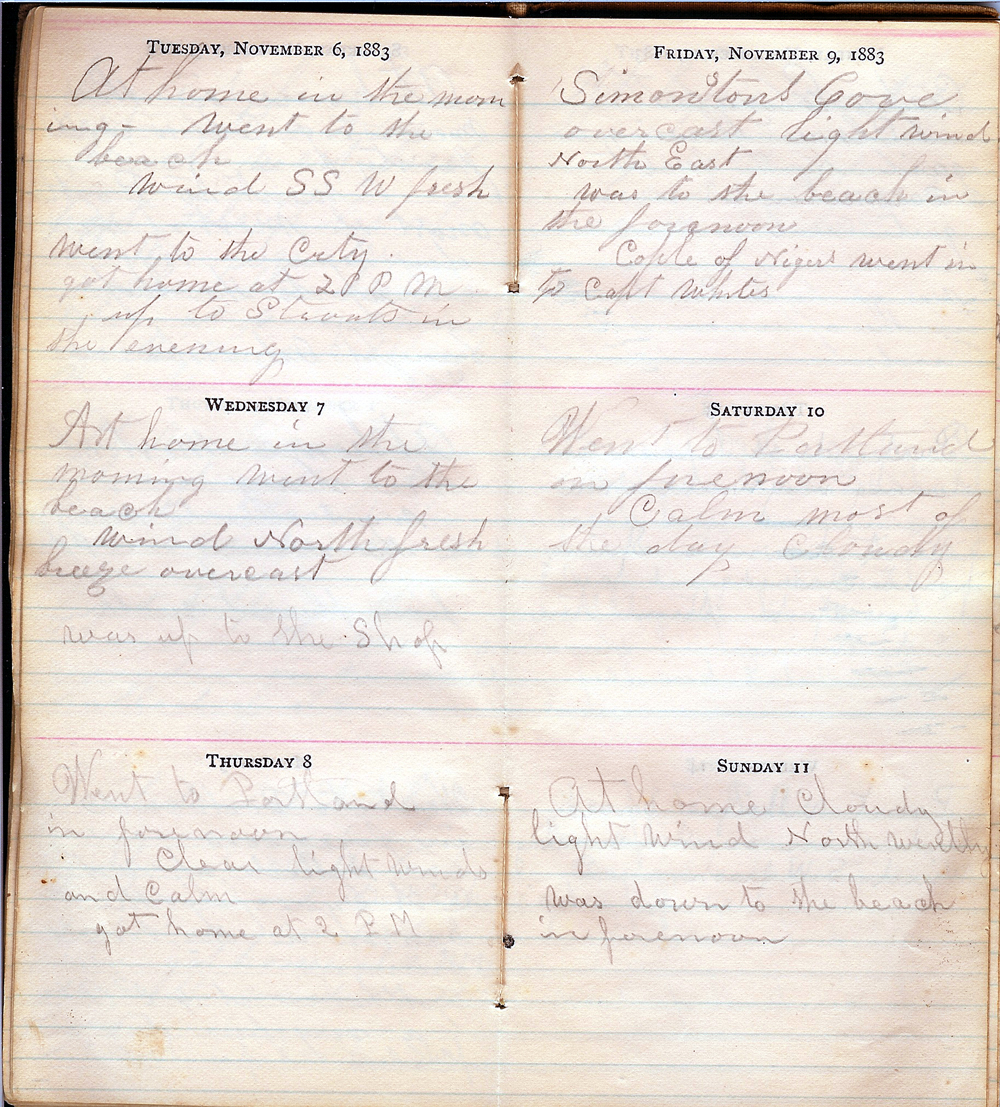 TUESDAY, NOVEMBER 6, 1883
At home in the morn
ing - went to the
beach
wind SS W fresh
went to the City
got home at 2 P M
up to Stauats in
the evening
WEDNESDAY 7
At home in the
morning went to the
beach
wind North fresh
breeze overcast
was up to the Shop
THURSDAY 8
Went to Portland
in forenoon
Clear light winds
and Calm
got home at 2 P M
FRIDAY, NOVEMBER 9, 1883
Simontons Cove
overcast light wind
North East
was to the beach in
the forenoon
Cople of Nigers went in
to Capt Whites
SATURDAY 10
Went to Portland
on forenoon
Calm most of
the day Cloudy
SUNDAY 11
At home Cloudy
light wind North
was down to the beach
in forenoon